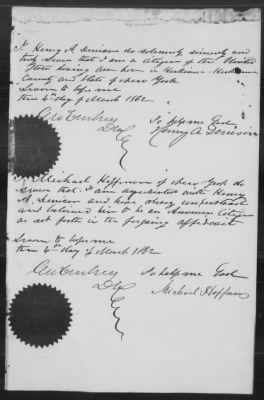 I, Henry A. Denison do solemnly sincerely and
truly swear that I am a citizen of the United
States having been born in Herkimer Herkimer
County and State of New York
Sworn to before me
this 4th day of March 1862
So help me God
Henry A Denison
I Michael Hoffman of New York do
swear that I am acquainted with Henry
A. Denison and have always understood
and believed him to be an American Citizen
as set forth in the foregoing affidavit
Sworn to before me
this 4th day of March 1862
So help me God
Michael Hoffman